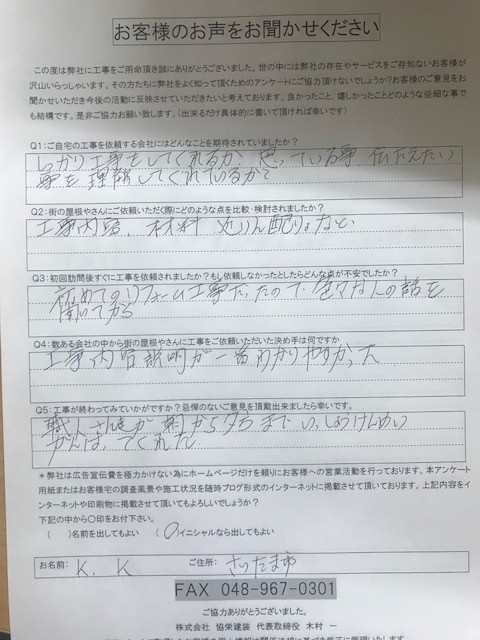 お客様のお声をお聞かせください
この度は弊社に工事をご用命頂き誠にありがとうございました。世の中には弊社の存在やサービスをご存知ないお客様が
沢山いらっしゃいます。その方たちに弊社をよく知って頂くためのアンケートにご協力頂けないでしょうか?お客様のご意見をお
聞かせいただき今後の活動に反映させていただきたいと考えております。良かったこと、嬉しかったことどのような些細な事で
も結構です。是非ご協力お願い致します。(出来るだけ具体的に書いて頂ければ幸いです)
Q1:ご自宅の工事を依頼する会社にはどんなことを期待されていましたか?
しっかり工事をしてくれるか、思っている事 伝えたい
事を理解してくれているか?
Q2:街の屋根やさんにご依頼いただく際にどのような点を比較・検討されましたか?
工事内容、材料 近りん配りょなど
Q3:初回訪問後すぐに工事を依頼されましたか?もし依頼しなかったとしたらどんな点が不安でしたか?
初めてのリフォーム工事だったので、色々な人の話を
聞いてから
Q4:数ある会社の中から街の屋根やさんに工事をご依頼いただいた決め手は何ですか
工事内容説明が一番わかりやすかった
Q5:工事が終わってみていかがですか?忌憚のないご意見を頂戴出来ましたら幸いです。
職人さん達が朝から夕方までいっしょうけんめい
がんばってくれた
*弊社は広告宣伝費を極力かけない為にホームページだけを頼りにお客様への営業活動を行っております。本アンケート
用紙またはお客様宅の調査風景や施工状況を随時ブログ形式のインターネットに掲載させて頂いております。上記内容をイ
ンターネットや印刷物に掲載させて頂いてもよろしいでしょうか?
下記の中から〇印をお付下さい。
( )名前を出してもよい (〇)イニシャルなら出してもよい
お名前: K. K ご住所: さいたま市
FAX 048-967-0301
ご協力ありがとうございました。
株式会社 協栄建装 代表取締役 木村 一